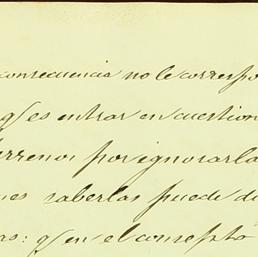 consecuencia no le correspo
q/ es entrar en cuestion
errenos por ignorarla
nes saberlas puede d
as: q/ en el consepto